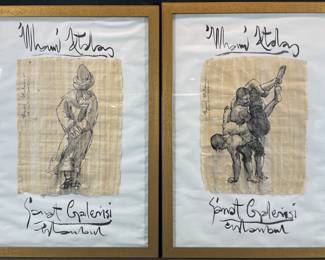 İlhami Atalay
Sanat Galerisi
İstanbul
İlhami Atalay
Sanat Galerisi
İstanbul